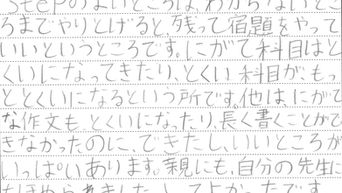 Stepのよいところは、わからないとこ
ろまでやりとげると、残って宿題をやって
いいというところです。にがて科目はと
くいになってきたり、とくい科目が、もっ
ととくいになるという所です。他は、にがて
な作文も とくいになったり、長く書くことがで
きなかったのに、できたし、いいところが
いっぱいあります。親にも、自分の先生に